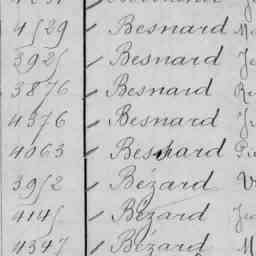 4529 Besnard
3925 Besnard
3876 Besnard
4376 Besnard
4063 Besnard
3952 Bézard
4145 Bézard
4347 Bézard